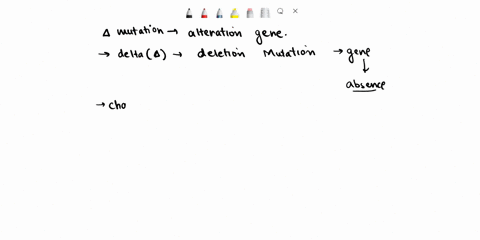 Δ mutation → alteration gene.
→ delta (Δ) → deletion Mutation → gene
↓
absence
→ cho